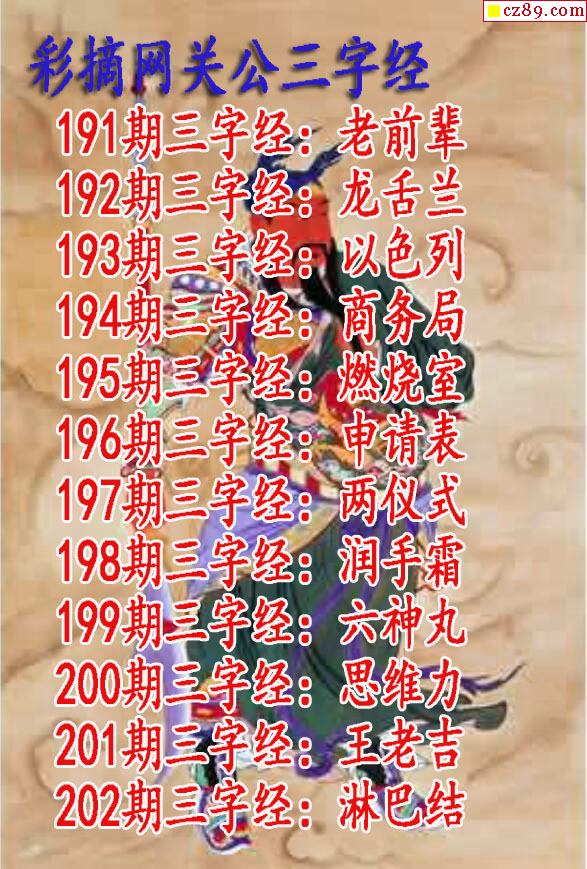 cz89.com
彩摘网关公三字经
191期三字经：老前辈
192期三字经：龙舌兰
193期三字经：以色列
194期三字经：商务局
195期三字经：燃烧室
196期三字经：申请表
197期三字经：两仪式
198期三字经：润手霜
199期三字经：六神丸
200期三字经：思维力
201期三字经：王老吉
202期三字经：淋巴结